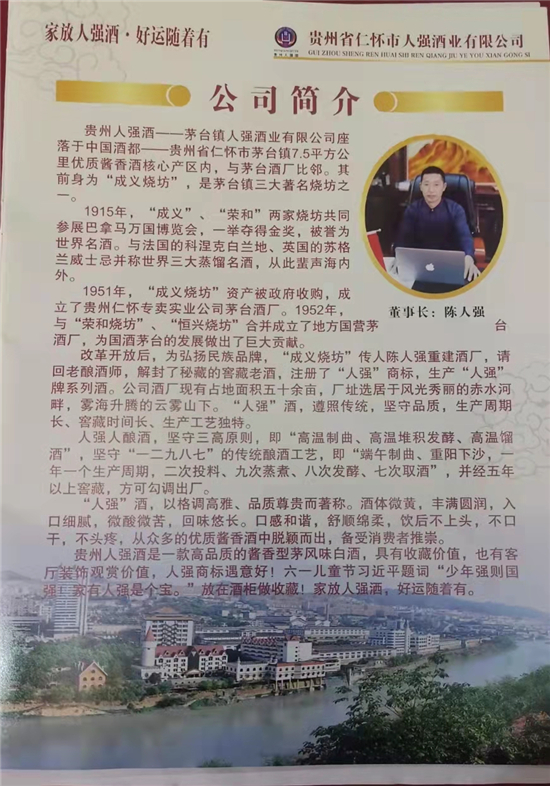 家放人强酒·好运随着有
贵州省仁怀市人强酒业有限公司
GUI ZHOU SHENG REN HUAI SHI REN QIANG JIU YE YOU XIAN GONG SI
公司简介
贵州人强酒——茅台镇人强酒业有限公司座
落于中国酒都——贵州省仁怀市茅台镇7.5平方公
里优质酱香酒核心产区内，与茅台酒厂比邻。其
前身为“成义烧坊”，是茅台镇三大著名烧坊之
一。
1915年，“成义”、“荣和”两家烧坊共同
参展巴拿马万国博览会，一举夺得金奖，被誉为
世界名酒。与法国的科涅克白兰地、英国的苏格
兰威士忌并称世界三大蒸馏名酒，从此蜚声海内
外。
1951年，“成义烧坊”资产被政府收购，成
立了贵州仁怀专卖实业公司茅台酒厂。1952年，
与“荣和烧坊”、“恒兴烧坊”合并成立了地方国营茅台
酒厂，为国酒茅台的发展做出了巨大贡献。
董事长：陈人强
改革开放后，为弘扬民族品牌，“成义烧坊”传人陈人强重建酒厂，请
回老酿酒师，解封了秘藏的窖藏老酒，注册了“人强”商标，生产“人强”
牌系列酒。公司酒厂现有占地面积五十余亩，厂址选居于风光秀丽的赤水河
畔，雾海升腾的云雾山下。“人强”酒，遵照传统，坚守品质，生产周期
长、窖藏时间长、生产工艺独特。
人强人酿酒，坚守三高原则，即“高温制曲、高温堆积发酵、高温馏
酒”，坚守“一二九八七”的传统酿酒工艺，即“端午制曲、重阳下沙，一
年一个生产周期，二次投料、九次蒸煮、八次发酵、七次取酒”，并经五年
以上窖藏，方可勾调出厂。
“人强”酒，以格调高雅、品质尊贵而著称。酒体微黄，丰满圆润，入
口细腻，微酸微苦，回味悠长。口感和谐，舒顺绵柔，饮后不上头，不口
干，不头疼，从众多的优质酱香酒中脱颖而出，备受消费者推崇。
贵州人强酒是一款高品质的酱香型茅风味白酒，具有收藏价值，也有客
厅装饰观赏价值，人强商标遇意好！六一儿童节习近平题词“少年强则国
强！家有人强是个宝。”放在酒柜做收藏！家放人强酒，好运随着有。